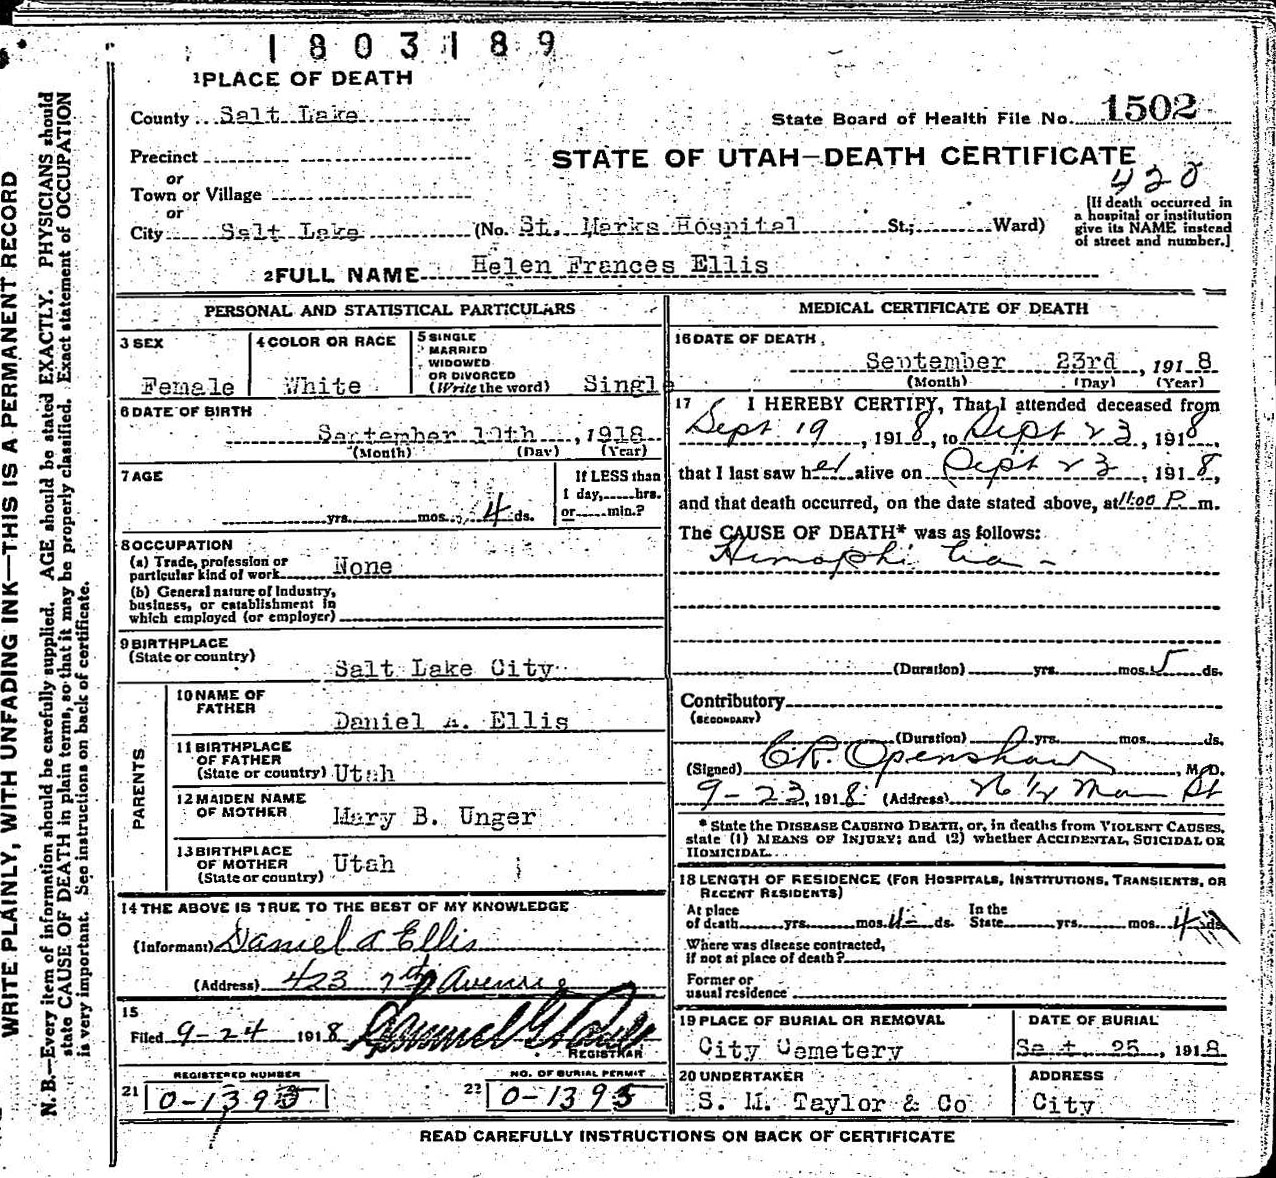 1803189
1 PLACE OF DEATH
County Salt Lake
State Board of Health File No. 1502
Precinct
STATE OF UTAH—DEATH CERTIFICATE
or
420
Town or Village
or
City Salt Lake (No. St. Marks Hospital St.; Ward)
[If death occurred in
a hospital or institution
give its NAME instead
of street and number.]
2 FULL NAME Helen Frances Ellis
PERSONAL AND STATISTICAL PARTICULARS
3 SEX
Female
4 COLOR OR RACE
White
5 SINGLE
MARRIED
WIDOWED
OR DIVORCED
(Write the word) Single
6 DATE OF BIRTH
September 19th, 1918
(Month) (Day) (Year)
7 AGE
yrs. mos. 4 ds.
If LESS than
1 day, hrs.
or min.?
8 OCCUPATION
(a) Trade, profession or
particular kind of work None
(b) General nature of Industry,
business, or establishment in
which employed (or employer)
9 BIRTHPLACE
(State or country)
Salt Lake City
PARENTS
10 NAME OF
FATHER
Daniel A. Ellis
11 BIRTHPLACE
OF FATHER
(State or country) Utah
12 MAIDEN NAME
OF MOTHER Mary B. Unger
13 BIRTHPLACE
OF MOTHER
(State or country) Utah
14 THE ABOVE IS TRUE TO THE BEST OF MY KNOWLEDGE
(Informant) Daniel A Ellis
(Address) 423 7th Avenue
15
Filed 9-24 1918
REGISTRAR
REGISTERED NUMBER
21 0-1395
NO. OF BURIAL PERMIT
22 0-1395
MEDICAL CERTIFICATE OF DEATH
16 DATE OF DEATH
September 23rd, 1918
(Month) (Day) (Year)
17 I HEREBY CERTIFY, That I attended deceased from
Sept 19, 1918, to Sept 23, 1918,
that I last saw her alive on Sept 23, 1918,
and that death occurred, on the date stated above, at 11:00 P. m.
The CAUSE OF DEATH* was as follows:
Hemophilia -
(Duration) yrs. mos. 5 ds.
Contributory
(SECONDARY)
(Duration) yrs. mos. ds.
(Signed) C.R. Openshaw, M.D.
9-23, 1918 (Address) Main St
* State the DISEASE CAUSING DEATH, or, in deaths from VIOLENT CAUSES,
state (1) MEANS OF INJURY; and (2) whether ACCIDENTAL, SUICIDAL OR
HOMICIDAL.
18 LENGTH OF RESIDENCE (FOR HOSPITALS, INSTITUTIONS, TRANSIENTS, OR
RECENT RESIDENTS)
At place
of death yrs. mos. 4 ds.
In the
State yrs. mos. 4 ds.
Where was disease contracted,
if not at place of death?
Former or
usual residence
19 PLACE OF BURIAL OR REMOVAL
City Cemetery
DATE OF BURIAL
Sept. 25, 1918
20 UNDERTAKER
S. M. Taylor & Co
ADDRESS
City
READ CAREFULLY INSTRUCTIONS ON BACK OF CERTIFICATE
WRITE PLAINLY, WITH UNFADING INK—THIS IS A PERMANENT RECORD
N. B.—Every item of information should be carefully supplied. AGE should be stated EXACTLY. PHYSICIANS should
state CAUSE OF DEATH in plain terms, so that it may be properly classified. Exact statement of OCCUPATION
is very important. See instructions on back of certificate.